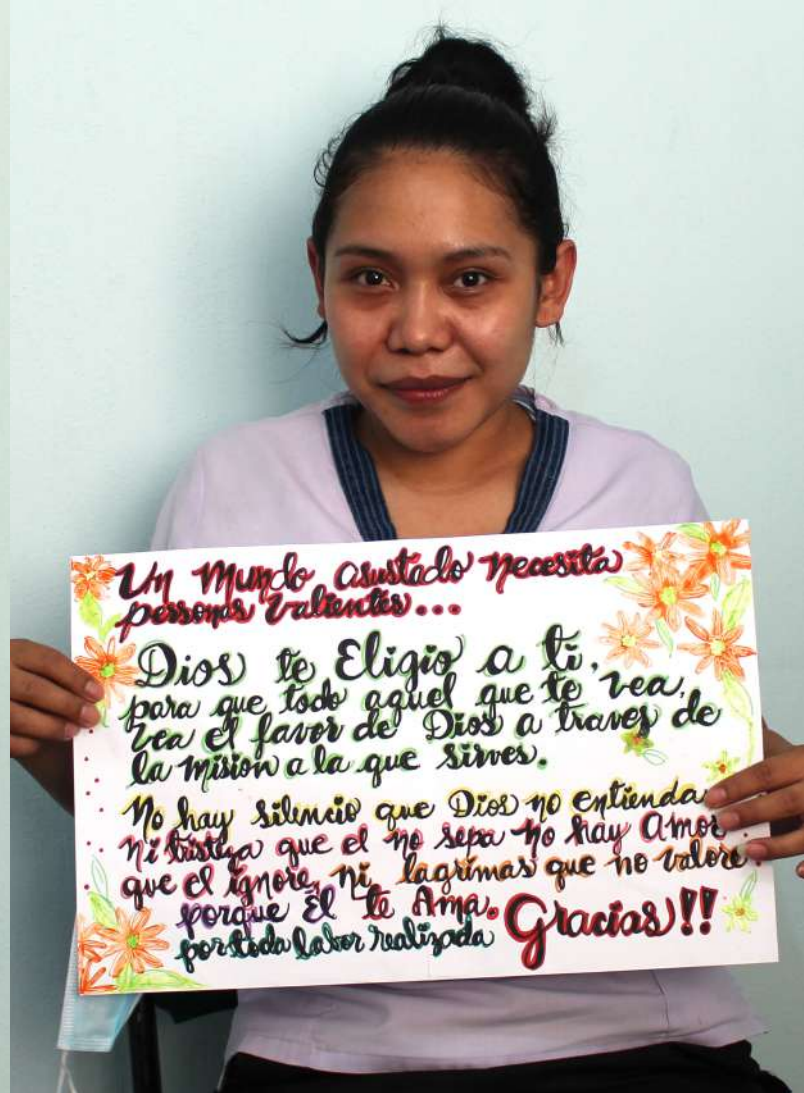 Un Mundo asustado necesita
personas valientes...
Dios te Eligio a ti,
para que todo aquel que te vea,
vea el favor de Dios a traves de
la mision a la que sirves.
No hay silencio que Dios no entienda
ni tristeza que el no sepa no hay Amor
que el ignore, ni lagrimas que no valore
porque Él te Ama.
por toda labor realizada Gracias!!